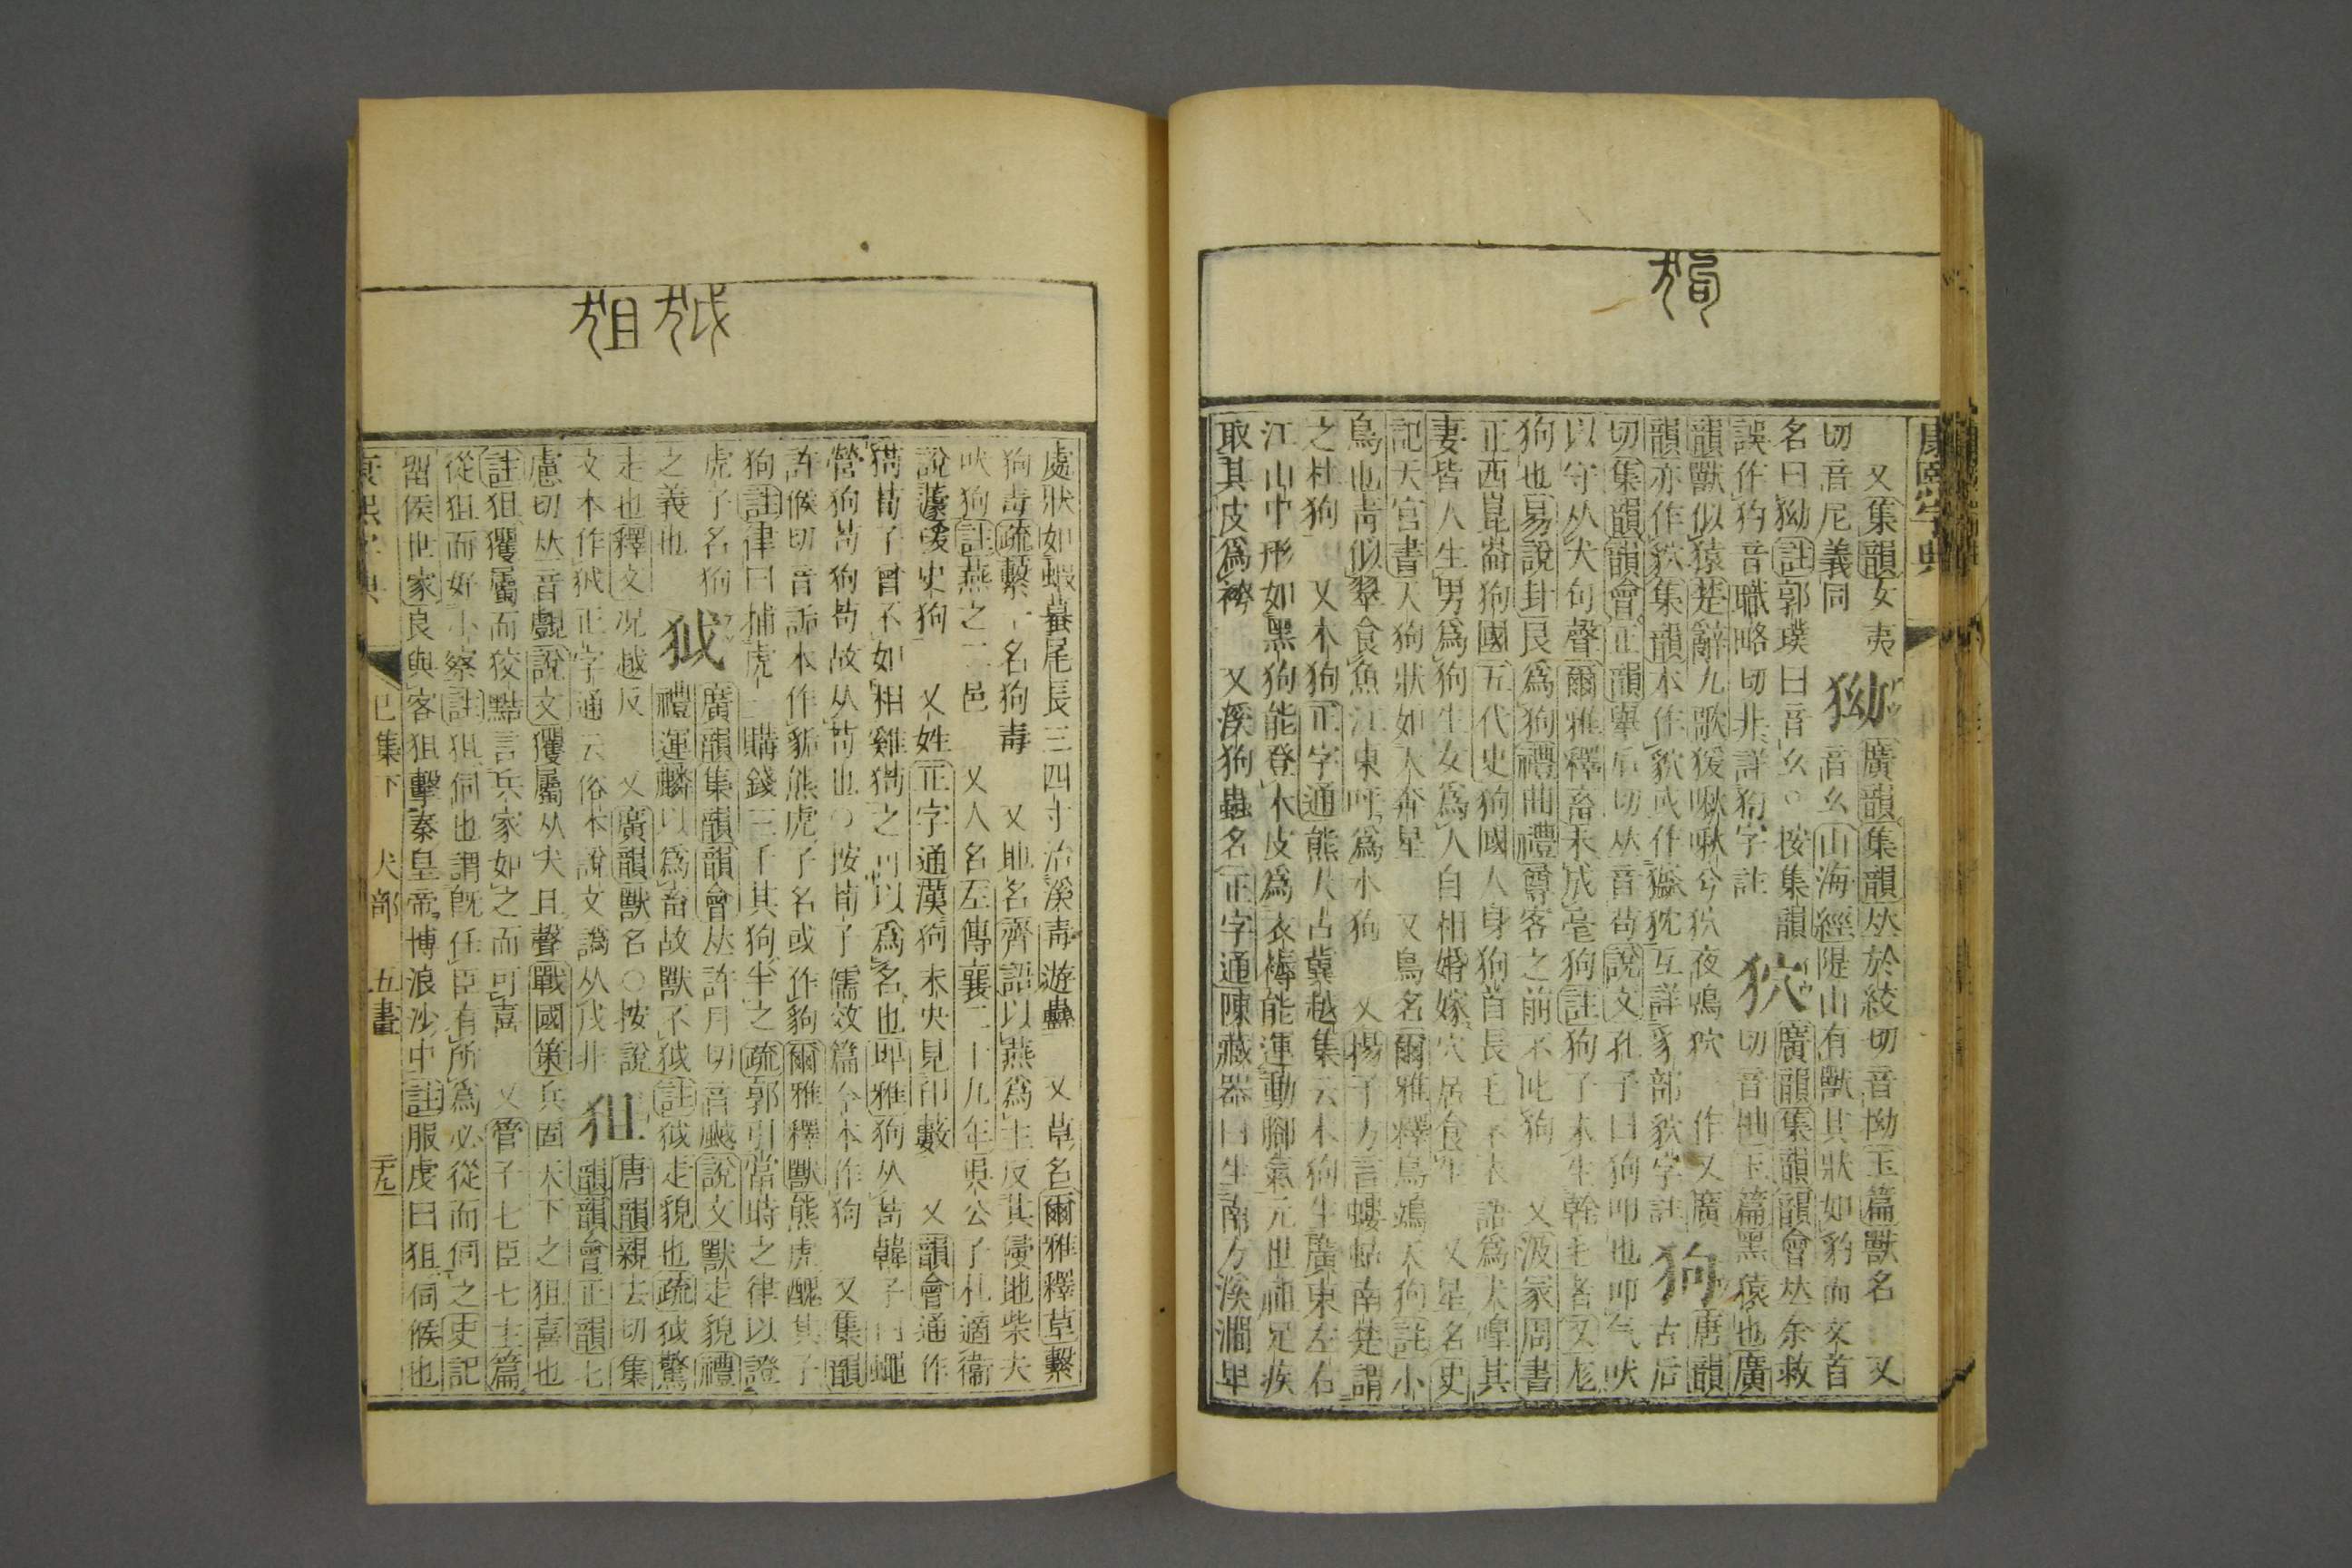 康熙字典
又集韻女夷
切音尼義同
狕
廣韻集韻𠀤於絞切音拗玉篇獸名 又
音幺山海經隄山有獸其狀如豹而文首
名曰狕註郭璞曰音幺○按集韻
誤作犳音職略切非詳犳字註
狖
廣韻集韻韻會𠀤余救
切音柚玉篇黑猿也廣
韻獸似猿楚辭九歌猨啾啾兮狖夜鳴狖 作 又廣
韻亦作貁集韻本作貁或作㺠狖互詳豸部貁字註
狗
唐韻
古后
切集韻韻會正韻舉后切𠀤音苟說文孔子曰狗叩也叩气吠
以守从犬句聲爾雅釋畜未成毫狗註狗子未生𠏉毛者又尨
狗也易說卦艮爲狗禮曲禮尊客之前不叱狗 又汲冢周書
正西崑崙狗國五代史狗國人身狗首長毛不衣語爲犬嘷其
妻皆人生男爲狗生女爲人自相婚嫁穴居食生 又星名史
記天官書天狗狀如大奔星 又鳥名爾雅釋鳥鴗天狗註小
鳥也靑似翠食魚江東呼爲水狗 又揚子方言螻蛄南楚謂
之杜狗 又木狗正字通熊太古冀越集云木狗生廣東左右
江山中形如黑狗能登木皮爲衣褥能運動腳氣元世祖足疾
取其皮爲袴 又溪狗蟲名正字通陳藏器曰生南方溪澗𤰞
處狀如蝦蟇尾長三四寸治溪毒遊蠱 又草名爾雅釋草繫
狗毒疏繫一名狗毒 又地名齊語以燕爲主反其侵地柴夫
吠狗註燕之二邑 又人名左傳襄二十九年吳公子札適衞
說蘧瑗史狗 又姓正字通漢狗未央見印藪 又韻會通作
猗荀子曾不如相雞猗之可以爲名也卽雅狗从苟韓子曰蠅
營狗苟狗苟故从苟也○按荀子儒效篇今本作狗 又集韻
許候切音詬本作豞熊虎子名或作豿爾雅釋獸熊虎醜其子
狗註律曰捕虎一購錢三千其狗半之疏郭引當時之律以證
虎子名狗
之義也
狘
廣韻集韻韻會𠀤許月切音䬂說文獸走貌禮
禮運麟以爲畜故獸不狘註狘走貌也疏狘驚
走也釋文况越反 又廣韻獸名○按說
文本作狘正字通云俗本說文譌从戊非
狙
唐韻親去切集
韻韻會正韻七
慮切𠀤音覰說文玃屬从犬且聲戰國策兵固天下之狙喜也
註狙玃屬而狡黠言兵家如之而可喜 又管子七臣七主篇
從狙而好小察註狙伺也謂旣任臣有所爲必從而伺之史記
留侯世家良與客狙擊秦皇帝博浪沙中註服虔曰狙伺候也
康熙字典 巳集下 犬部 五畫 二十九